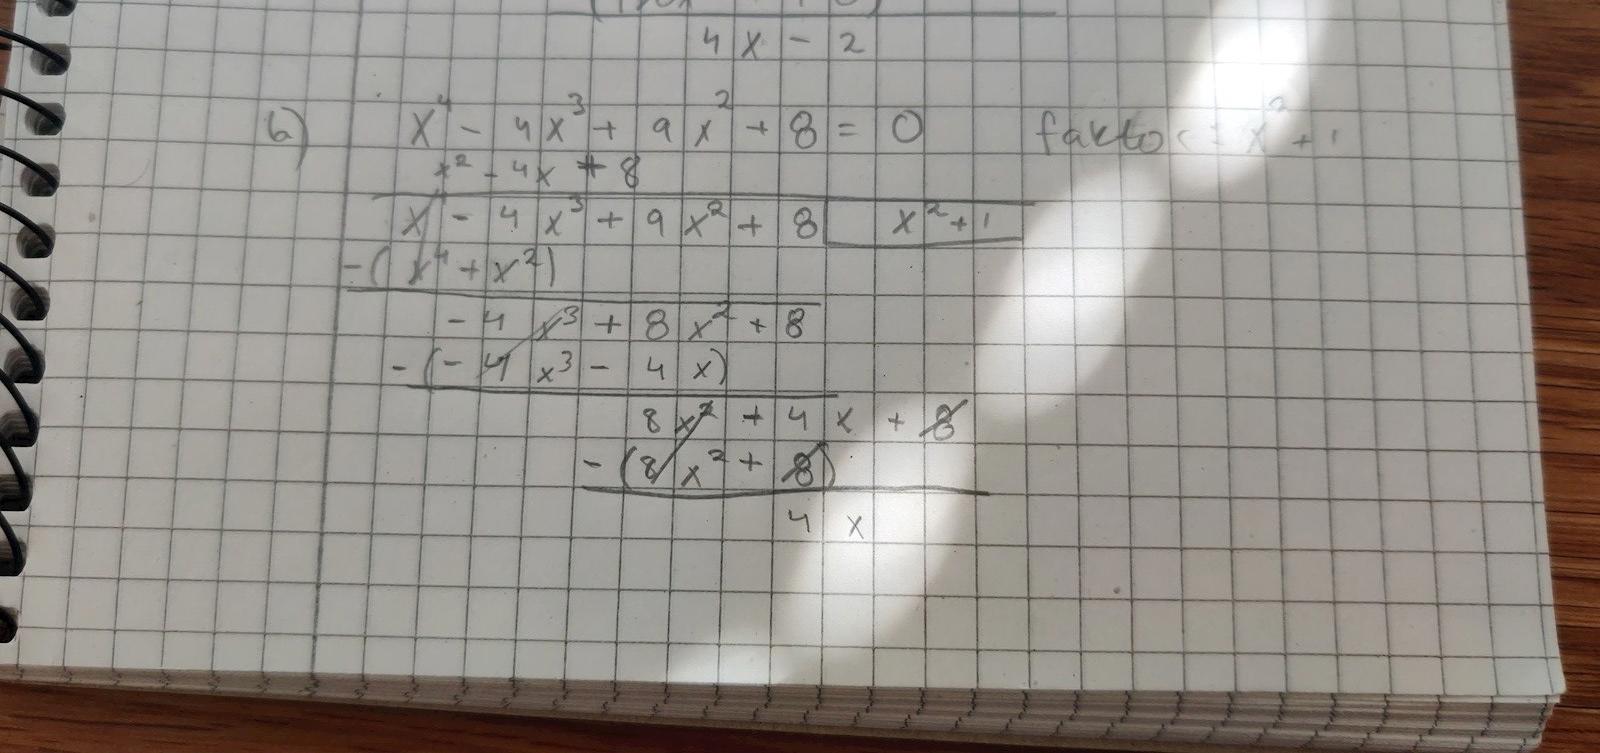 4x - 2
b) x⁴ - 4x³ + 9x² + 8 = 0 faktor = x² + 1
x² - 4x + 8
x⁴ - 4x³ + 9x² + 8 x² + 1
-(x⁴ + x²)
-4x³ + 8x² + 8
-(-4x³ - 4x)
8x² + 4x + 8
-(8x² + 8)
4x